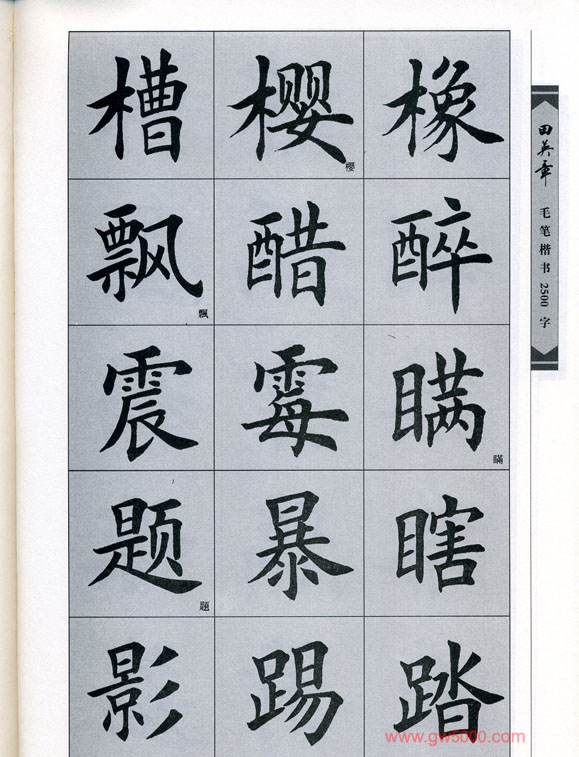 槽 樱 橡
樱
飘 醋 醉
飄
震 霉 瞒
瞞
题 暴 瞎
題
影 踢 踏
田英章 毛笔楷书2500字
www.gw5000.com